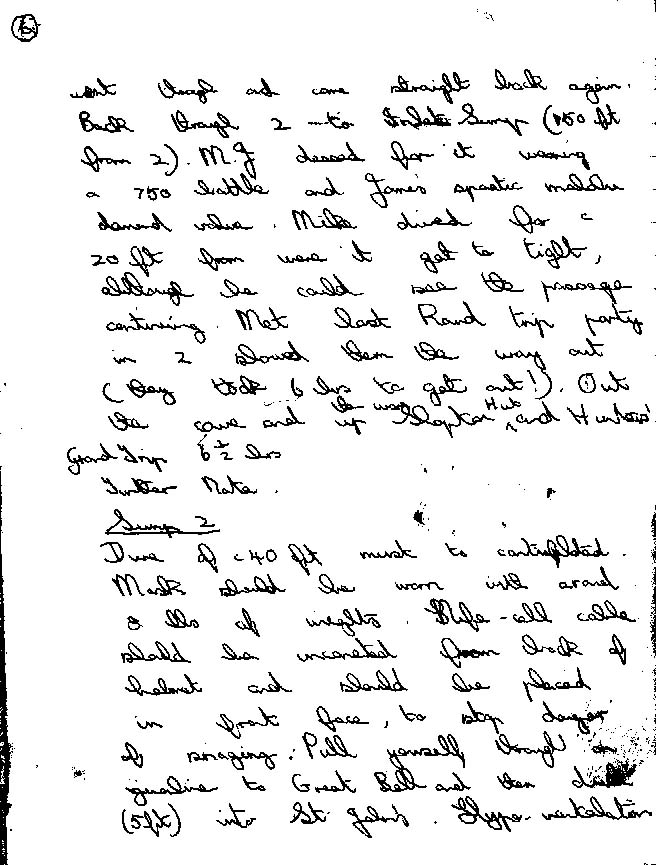 6
went through and came straight back again.
Back through 2 to Sump (150 ft
from 2). M.J dressed for it wearing
a 750 bottle and James spastic
demand valve. Mike dived for c
20 ft from were it got to tight,
although he could see the passage
continuing. Met last Round trip party
in 2 showed them the way out
(they took 6 hrs to get out!). Out
the cave and up the way Shepton Hut and Hunters'
Grand Trip 6½ hrs
Further Note.
Sump 2
Dive of c 40 ft must to
Mask should be worn with around
8 lbs of weights. Nife-cell cable
should be from back of
helmet and should be placed
in front face, to stop danger
of snaging. Pull yourself through on
guideline to Great Bell and then dive
(5ft) into St John's. Hyper-ventelation